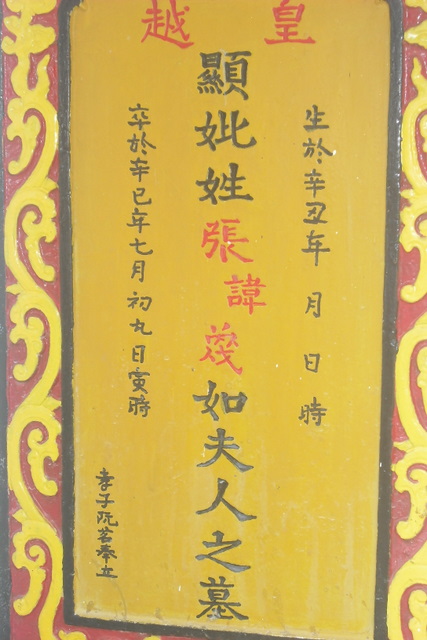 皇越
生於辛丑年 月 日 時
顯妣姓張諱㦖如夫人之墓
卒於辛巳年七月初九日寅時
孝子阮茗奉立